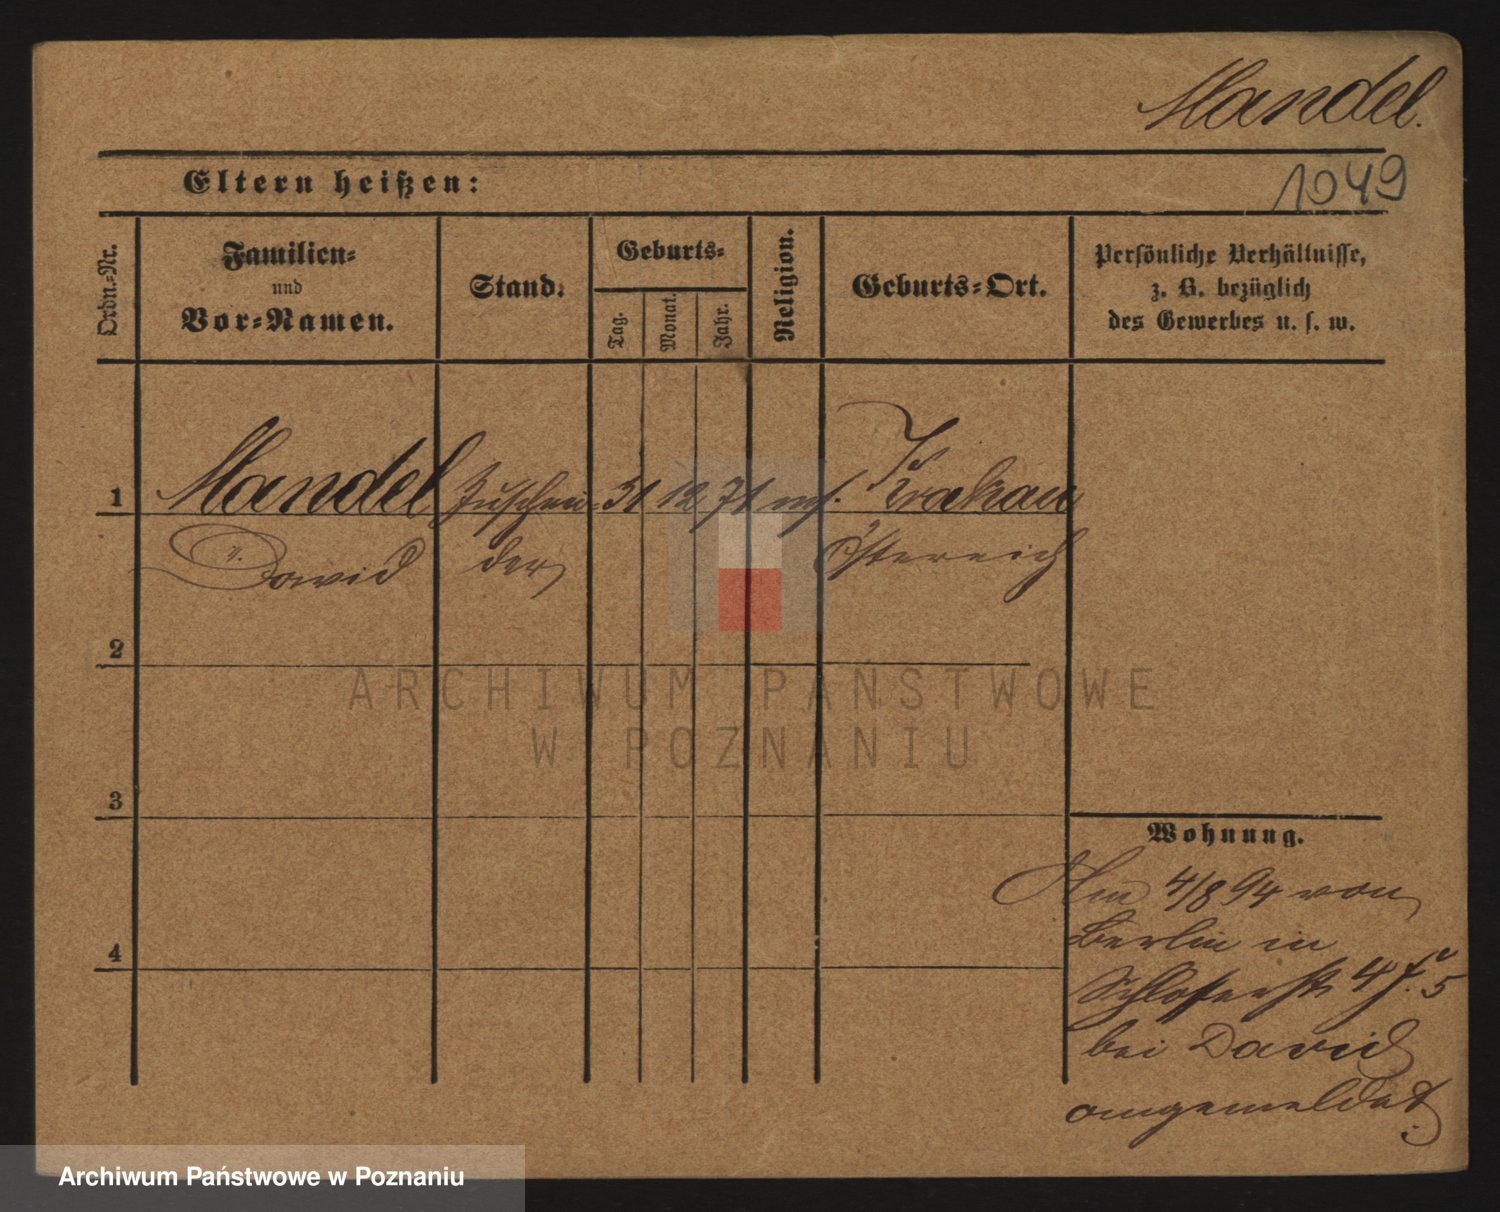 Mandel.
Eltern heißen:
1049
Ordn.=Nr.
Familien=
und
Vor=Namen.
Stand.
Geburts=
Tag.
Monat.
Jahr.
Religion.
Geburts=Ort.
Persönliche Verhältnisse,
z. B. bezüglich
des Gewerbes u. s. w.
1
Mandel
David
Zuschnei=
der
31
12
71
mos.
Krakau
Östereich
2
3
4
Wohnung.
Am 4/8 94 von
Berlin in
Schlosserstr 4
bei David
angemeldet
ARCHIWUM PAŃSTWOWE
W POZNANIU
Archiwum Państwowe w Poznaniu